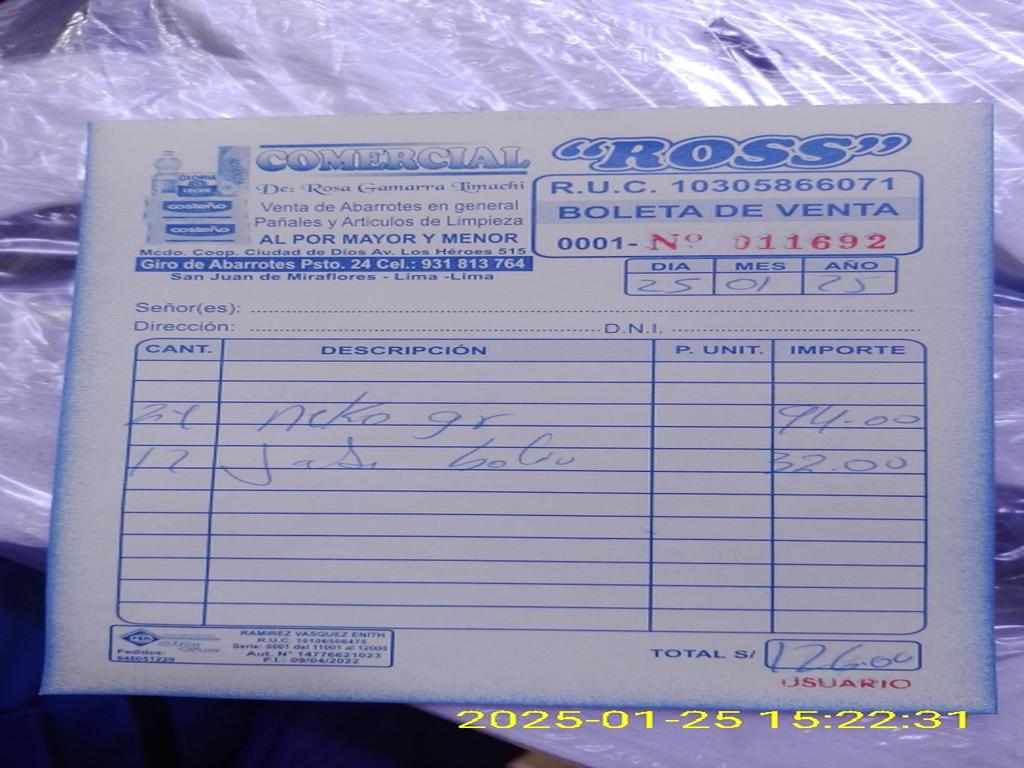 COMERCIAL "ROSS"
De: Rosa Gamarra Limachi
Venta de Abarrotes en general
Pañales y Articulos de Limpieza
AL POR MAYOR Y MENOR
Mcdo. Coop. Ciudad de Dios Av. Los Héroes 515
Giro de Abarrotes Psto. 24 Cel.: 931 813 764
San Juan de Miraflores - Lima -Lima
GLORIA
LECHE
costeño
costeño
R.U.C. 10305866071
BOLETA DE VENTA
0001- Nº 011692
DIA MES AÑO
25 01 25
Señor(es):
Dirección: D.N.I.
CANT. DESCRIPCIÓN P. UNIT. IMPORTE
24 neko gr 94.00
12 32.00
Pedidos:
946051229
RAMIREZ VASQUEZ ENITH
R.U.C. 10106506475
Serie: 0001 del 11001 al 12000
Aut. Nº 14776621023
F.I.: 09/04/2022
TOTAL S/ 126.00
USUARIO
2025-01-25 15:22:31